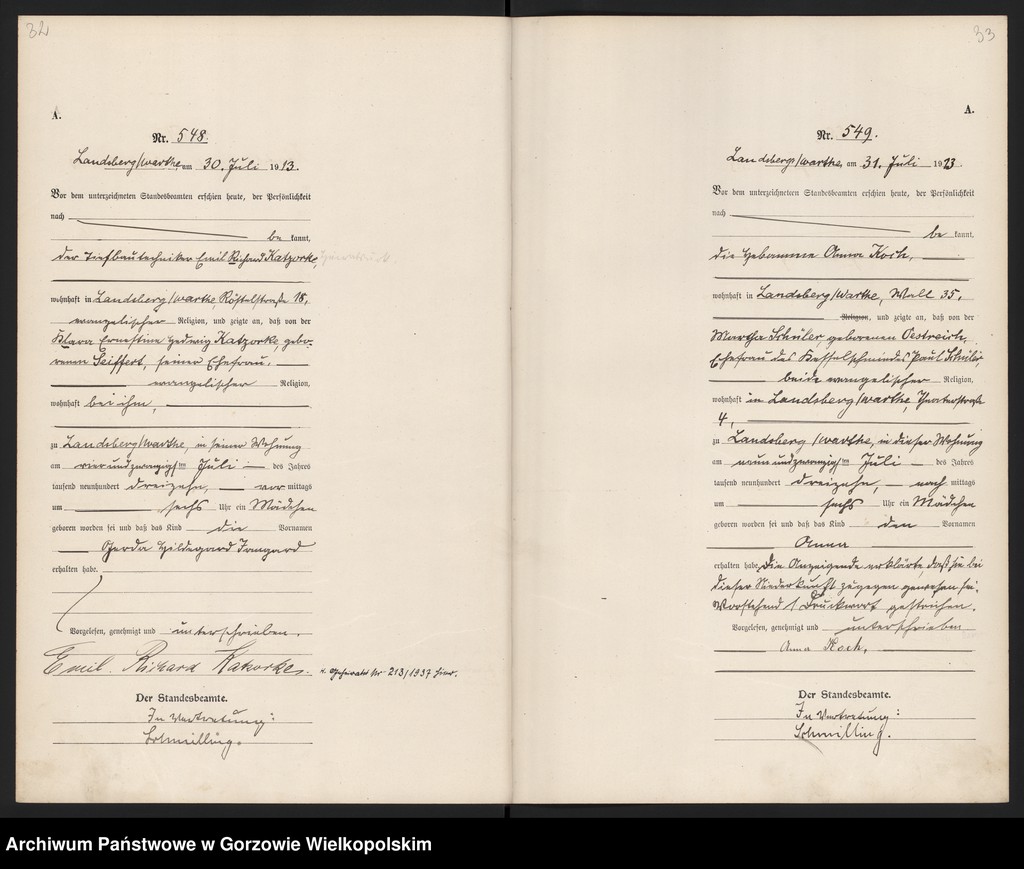 32
A.
Nr. 548.
Landsberg/Warthe am 30. Juli 1913.
Vor dem unterzeichneten Standesbeamten erschien heute, der Persönlichkeit
nach
be kannt,
der Tiefbautechniker Emil Richard Katzorke,
wohnhaft in Landsberg/Warthe, Röstelstraße 18,
evangelischer Religion, und zeigte an, daß von der
Klara Ernestine Hedwig Katzorke, gebo-
renen Seiffert, seiner Ehefrau,
evangelischer Religion,
wohnhaft bei ihm,
zu Landsberg/Warthe, in seiner Wohnung
am vierundzwanzigsten Juli des Jahres
tausend neunhundert dreizehn, vor mittags
um sechs Uhr ein Mädchen
geboren worden sei und daß das Kind die Vornamen
Gerda Hildegard Irmgard
erhalten habe.
Vorgelesen, genehmigt und unterschrieben.
Emil Richard Katzorke.
Geheiratet Nr 213/1937 hier.
Der Standesbeamte.
In Vertretung:
Schmilling.
33
A.
Nr. 549.
Landsberg/Warthe, am 31. Juli 1913.
Vor dem unterzeichneten Standesbeamten erschien heute, der Persönlichkeit
nach
be kannt,
die Hebamme Anna Koch,
wohnhaft in Landsberg/Warthe, Wall 35,
Religion, und zeigte an, daß von der
Martha Schüler, geborenen Oestreich,
Ehefrau des Kesselschmiedes Paul Schüler,
beide evangelischer Religion,
wohnhaft in Landsberg/Warthe, Theaterstraße
4,
zu Landsberg/Warthe, in dieser Wohnung
am neunundzwanzigsten Juli des Jahres
tausend neunhundert dreizehn, nach mittags
um sechs Uhr ein Mädchen
geboren worden sei und daß das Kind den Vornamen
Anna
erhalten habe. Die Anzeigende erklärte, daß sie bei
dieser Niederkunft zugegen gewesen sei.
Vorstehend 1 Druckwort gestrichen.
Vorgelesen, genehmigt und unterschrieben
Anna Koch.
Der Standesbeamte.
In Vertretung:
Schmilling.
Archiwum Państwowe w Gorzowie Wielkopolskim